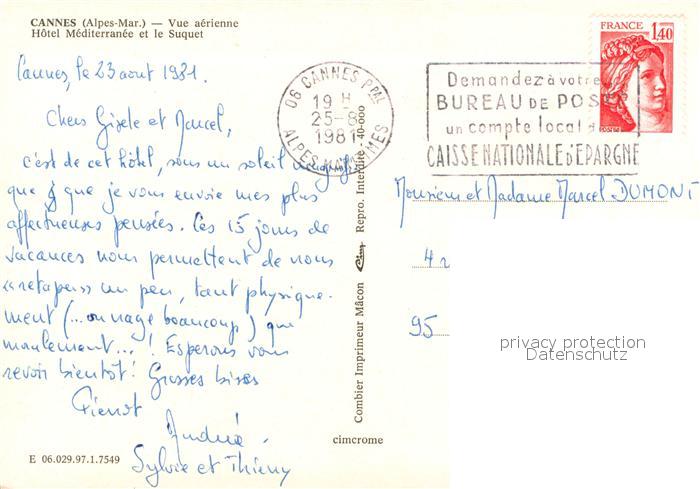 CANNES (Alpes-Mar.) — Vue aérienne
Hôtel Méditerranée et le Suquet
Cannes, le 23 aout 1981.
Chers Gisèle et Marcel,
c'est de cet hôtel, sous un soleil
que je vous envoie mes plus
affectueuses pensées. Ces 15 jours de
vacances nous permettent de nous
"retaper" un peu, tant physique-
ment (... on nage beaucoup) que
moralement...! Espérons vous
revoir bientôt! Grosses bises
Pierrot
Andrée.
Sylvie et Thierry
E 06.029.97.1.7549
cimcrome
Combier Imprimeur Mâcon Cim Repro. Interdite - 40-000
06 CANNES PPAL
19 H
25-8
1981
ALPES MARITIMES
Demandez à votre
BUREAU DE POSTE
un compte local
CAISSE NATIONALE D'EPARGNE
FRANCE
1,40
Monsieur et Madame Marcel DUMONT
4
95
privacy protection
Datenschutz